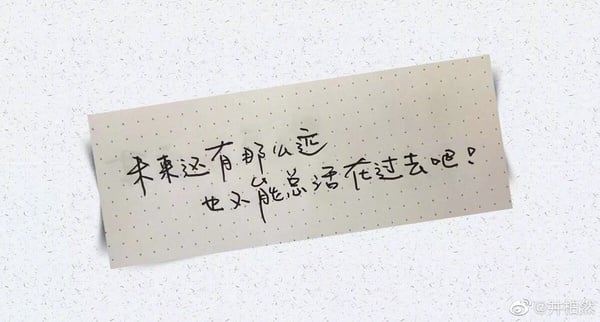 未来还有那么远
也不能总活在过去吧!
@井柏然